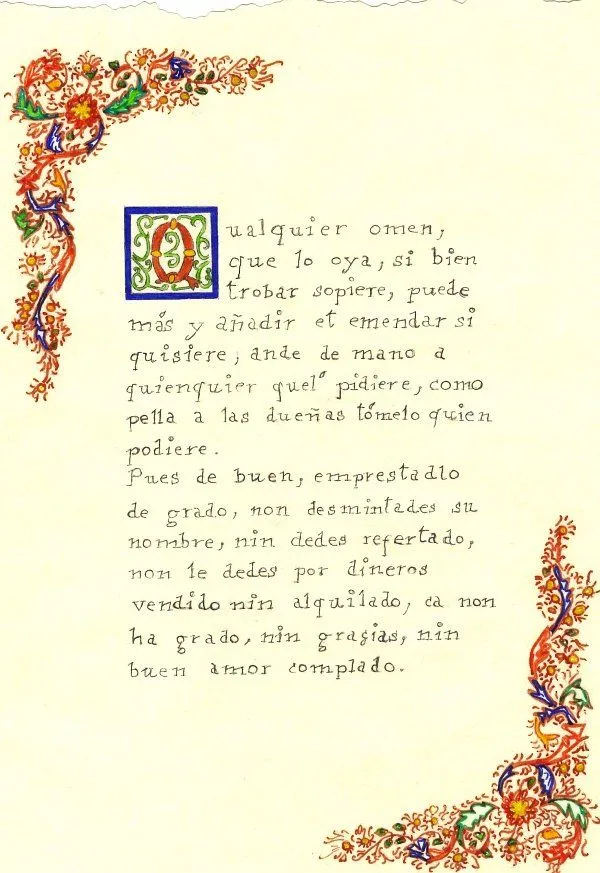 Qualquier omen,
que lo oya, si bien
trobar sopiere, puede
más y añadir et emendar si
quisiere, ande de mano a
quienquier quel' pidiere, como
pella a las dueñas tómelo quien
podiere.
Pues de buen, emprestadlo
de grado, non desmintades su
nombre, nin dedes refertado,
non le dedes por dineros
vendido nin alquilado, ca non
ha grado, nin graçias, nin
buen amor complado.